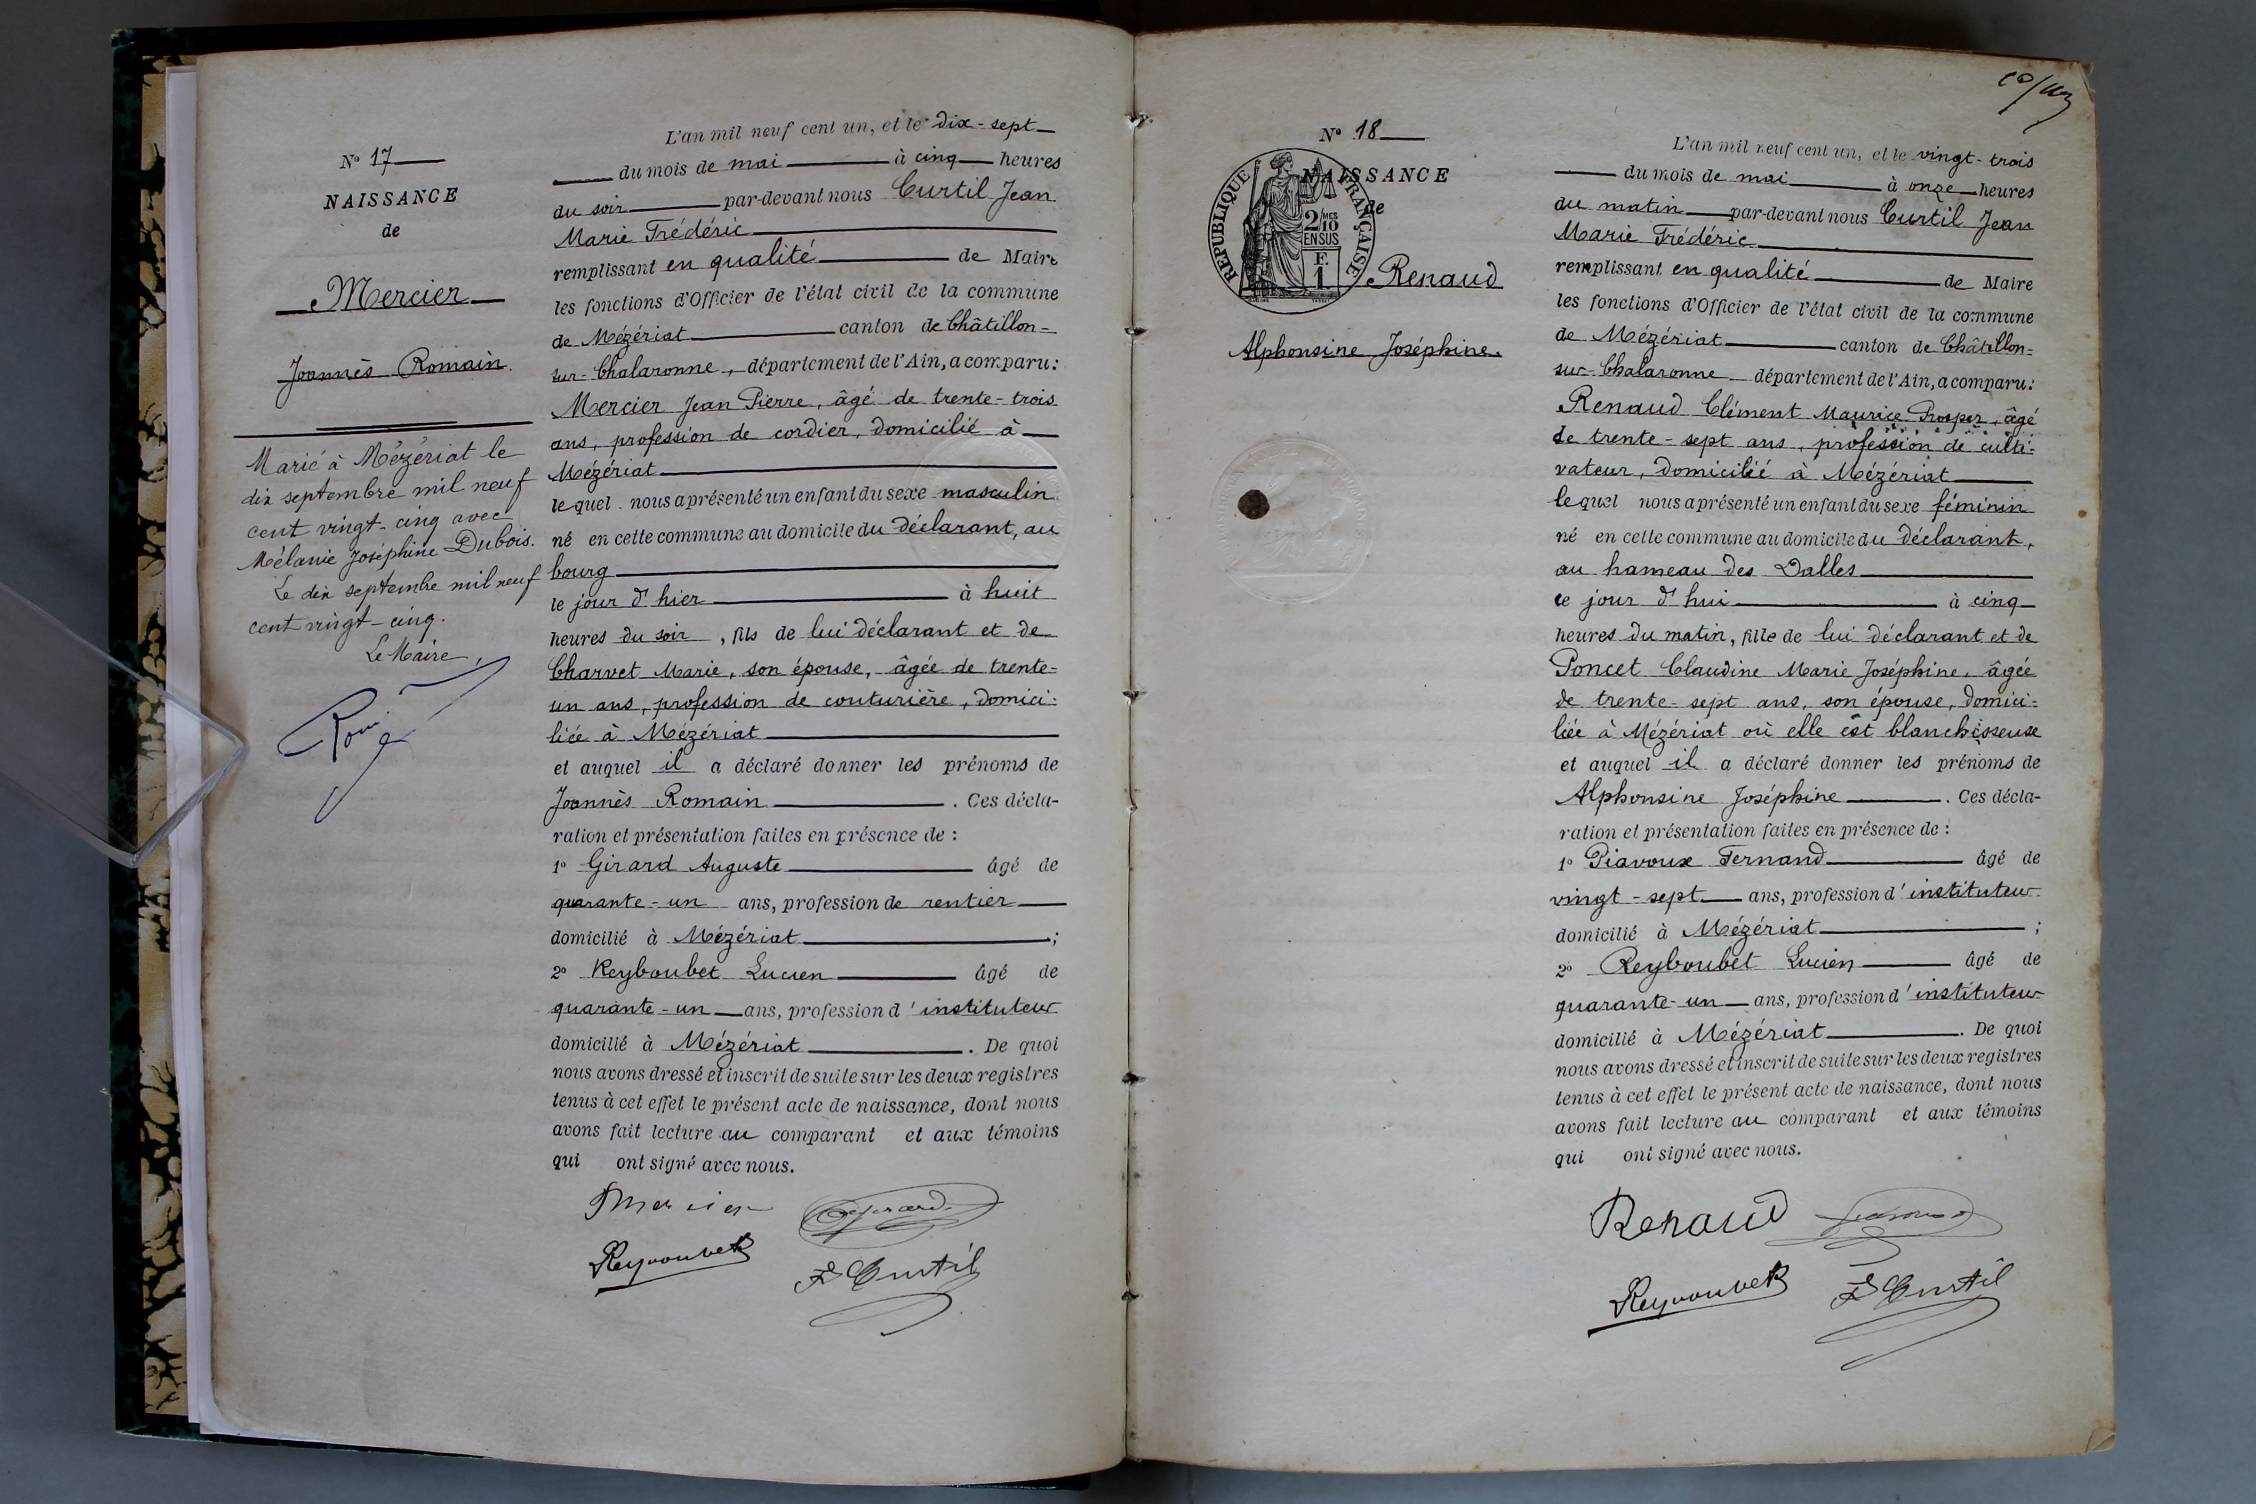 N° 17
NAISSANCE
de
Mercier
Joannès Romain.
Marié à Mézériat le
dix septembre mil neuf
cent vingt-cinq avec
Mélanie Joséphine Dubois.
Le dix septembre mil neuf
cent vingt-cinq.
Le Maire,
L'an mil neuf cent un, et le dix-sept
du mois de mai à cinq heures
du soir par-devant nous Curtil Jean
Marie Frédéric
remplissant en qualité de Maire
les fonctions d'Officier de l'état civil de la commune
de Mézériat canton de Châtillon-
sur-Chalaronne, département de l'Ain, a comparu:
Mercier Jean Pierre, âgé de trente-trois
ans, profession de cordier, domicilié à
Mézériat
lequel nous a présenté un enfant du sexe masculin
né en cette commune au domicile du déclarant, au
bourg
le jour d'hier à huit
heures du soir, fils de lui déclarant et de
Charvet Marie, son épouse, âgée de trente-
un ans, profession de couturière, domici-
liée à Mézériat
et auquel il a déclaré donner les prénoms de
Joannès Romain. Ces décla-
ration et présentation faites en présence de :
1° Girard Auguste âgé de
quarante-un ans, profession de rentier
domicilié à Mézériat ;
2° Reyboubet Lucien âgé de
quarante-un ans, profession d'instituteur
domicilié à Mézériat. De quoi
nous avons dressé et inscrit de suite sur les deux registres
tenus à cet effet le présent acte de naissance, dont nous
avons fait lecture au comparant et aux témoins
qui ont signé avec nous.
Mercier Girard
Reyboubet F Curtil
N° 18
NAISSANCE
de
RÉPUBLIQUE FRANÇAISE
2 MES
10
EN SUS
F.
1
Renaud
Alphonsine Joséphine.
L'an mil neuf cent un, et le vingt-trois
du mois de mai à onze heures
du matin par-devant nous Curtil Jean
Marie Frédéric
remplissant en qualité de Maire
les fonctions d'Officier de l'état civil de la commune
de Mézériat canton de Châtillon-
sur-Chalaronne département de l'Ain, a comparu:
Renaud Clément Maurice Prosper, âgé
de trente-sept ans, profession de culti-
vateur, domicilié à Mézériat
lequel nous a présenté un enfant du sexe féminin
né en cette commune au domicile du déclarant,
au hameau des Dalles
ce jour d'hui à cinq
heures du matin, fille de lui déclarant et de
Poncet Claudine Marie Joséphine, âgée
de trente-sept ans, son épouse, domici-
liée à Mézériat où elle est blanchisseuse
et auquel il a déclaré donner les prénoms de
Alphonsine Joséphine. Ces décla-
ration et présentation faites en présence de :
1° Piavoux Fernand âgé de
vingt-sept ans, profession d'instituteur
domicilié à Mézériat ;
2° Reyboubet Lucien âgé de
quarante-un ans, profession d'instituteur
domicilié à Mézériat. De quoi
nous avons dressé et inscrit de suite sur les deux registres
tenus à cet effet le présent acte de naissance, dont nous
avons fait lecture au comparant et aux témoins
qui ont signé avec nous.
Renaud
Reyboubet F Curtil